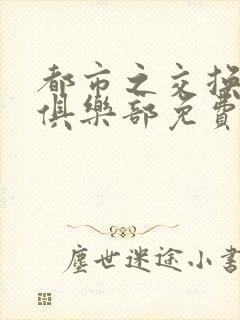 都市之交換
俱樂部免費
塵世迷途小書